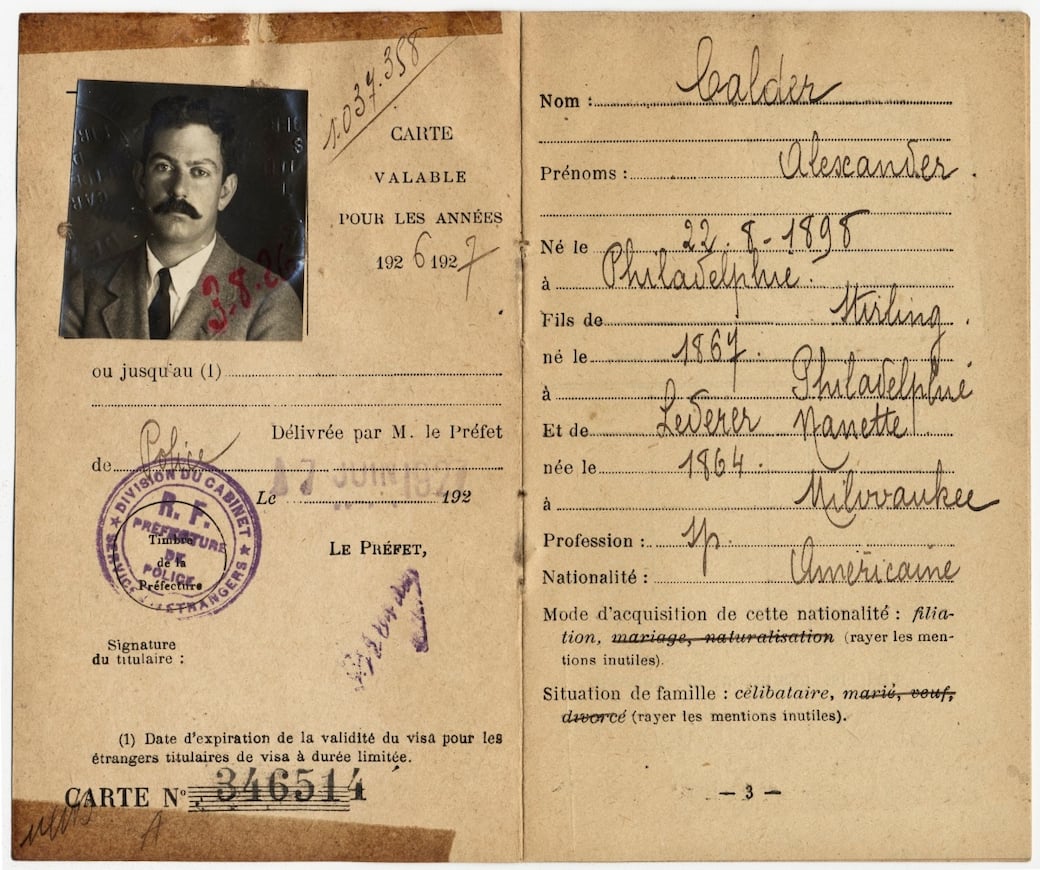 1.037.358
CARTE
VALABLE
POUR LES ANNÉES
1926 1927
3.8.26
ou jusqu'au (1)
Délivrée par M. le Préfet
de Police
Le 17 JUIN 192
LE PRÉFET,
DIVISION DU CABINET
R. F.
PRÉFECTURE
DE
POLICE
SERVICE ETRANGERS
Timbre
de la
Préfecture
Signature
du titulaire :
(1) Date d'expiration de la validité du visa pour les
étrangers titulaires de visa à durée limitée.
CARTE N° 346514
Nom : Calder
Prénoms : Alexander.
Né le 22.8-1898
à Philadelphie.
Fils de Stirling.
né le 1867.
à Philadelphie
Et de Lederer Nanette
née le 1864.
à Milwaukee
Profession : sp.
Nationalité : Américaine
Mode d'acquisition de cette nationalité : filia-
tion, mariage, naturalisation (rayer les men-
tions inutiles).
Situation de famille : célibataire, marié, veuf,
divorcé (rayer les mentions inutiles).
— 3 —